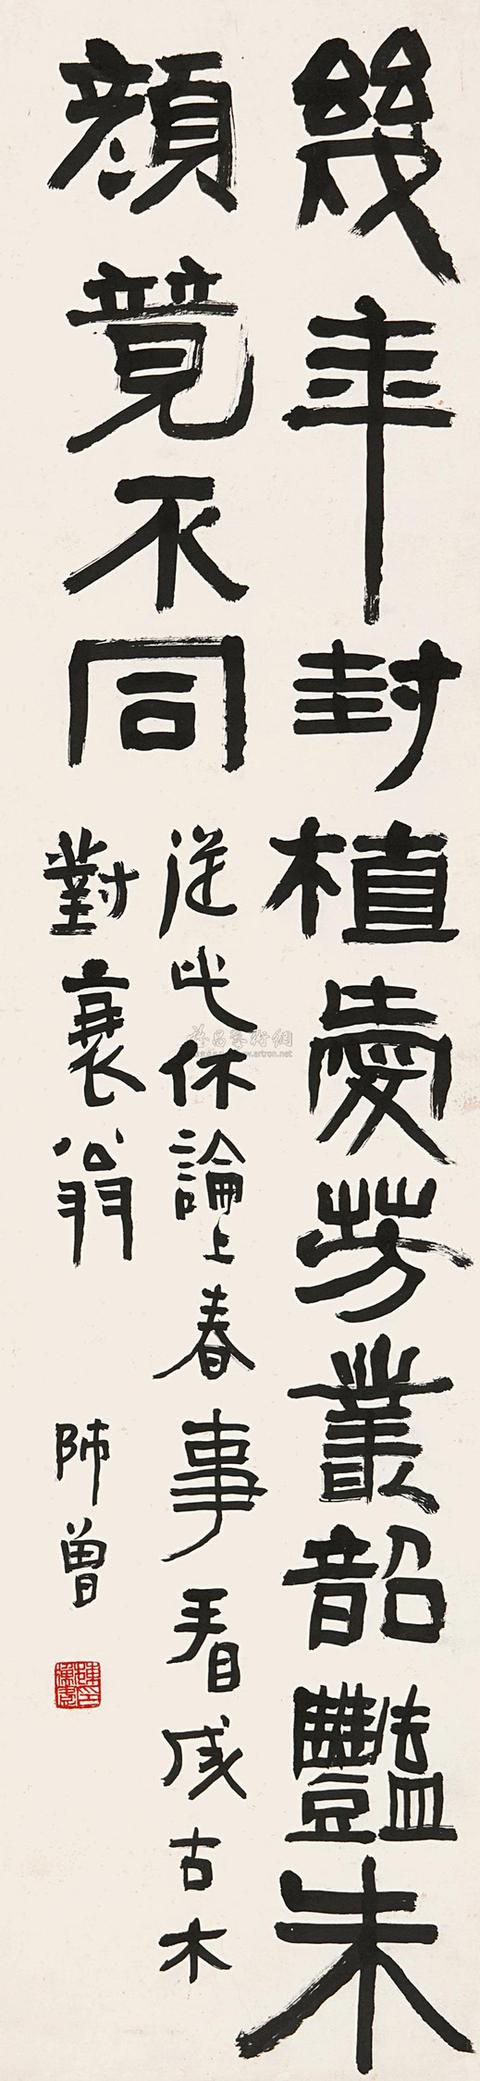 幾年封植愛芳叢韶豔朱
顔竟不同
從此休論上春事看成古木
對衰翁
師曾